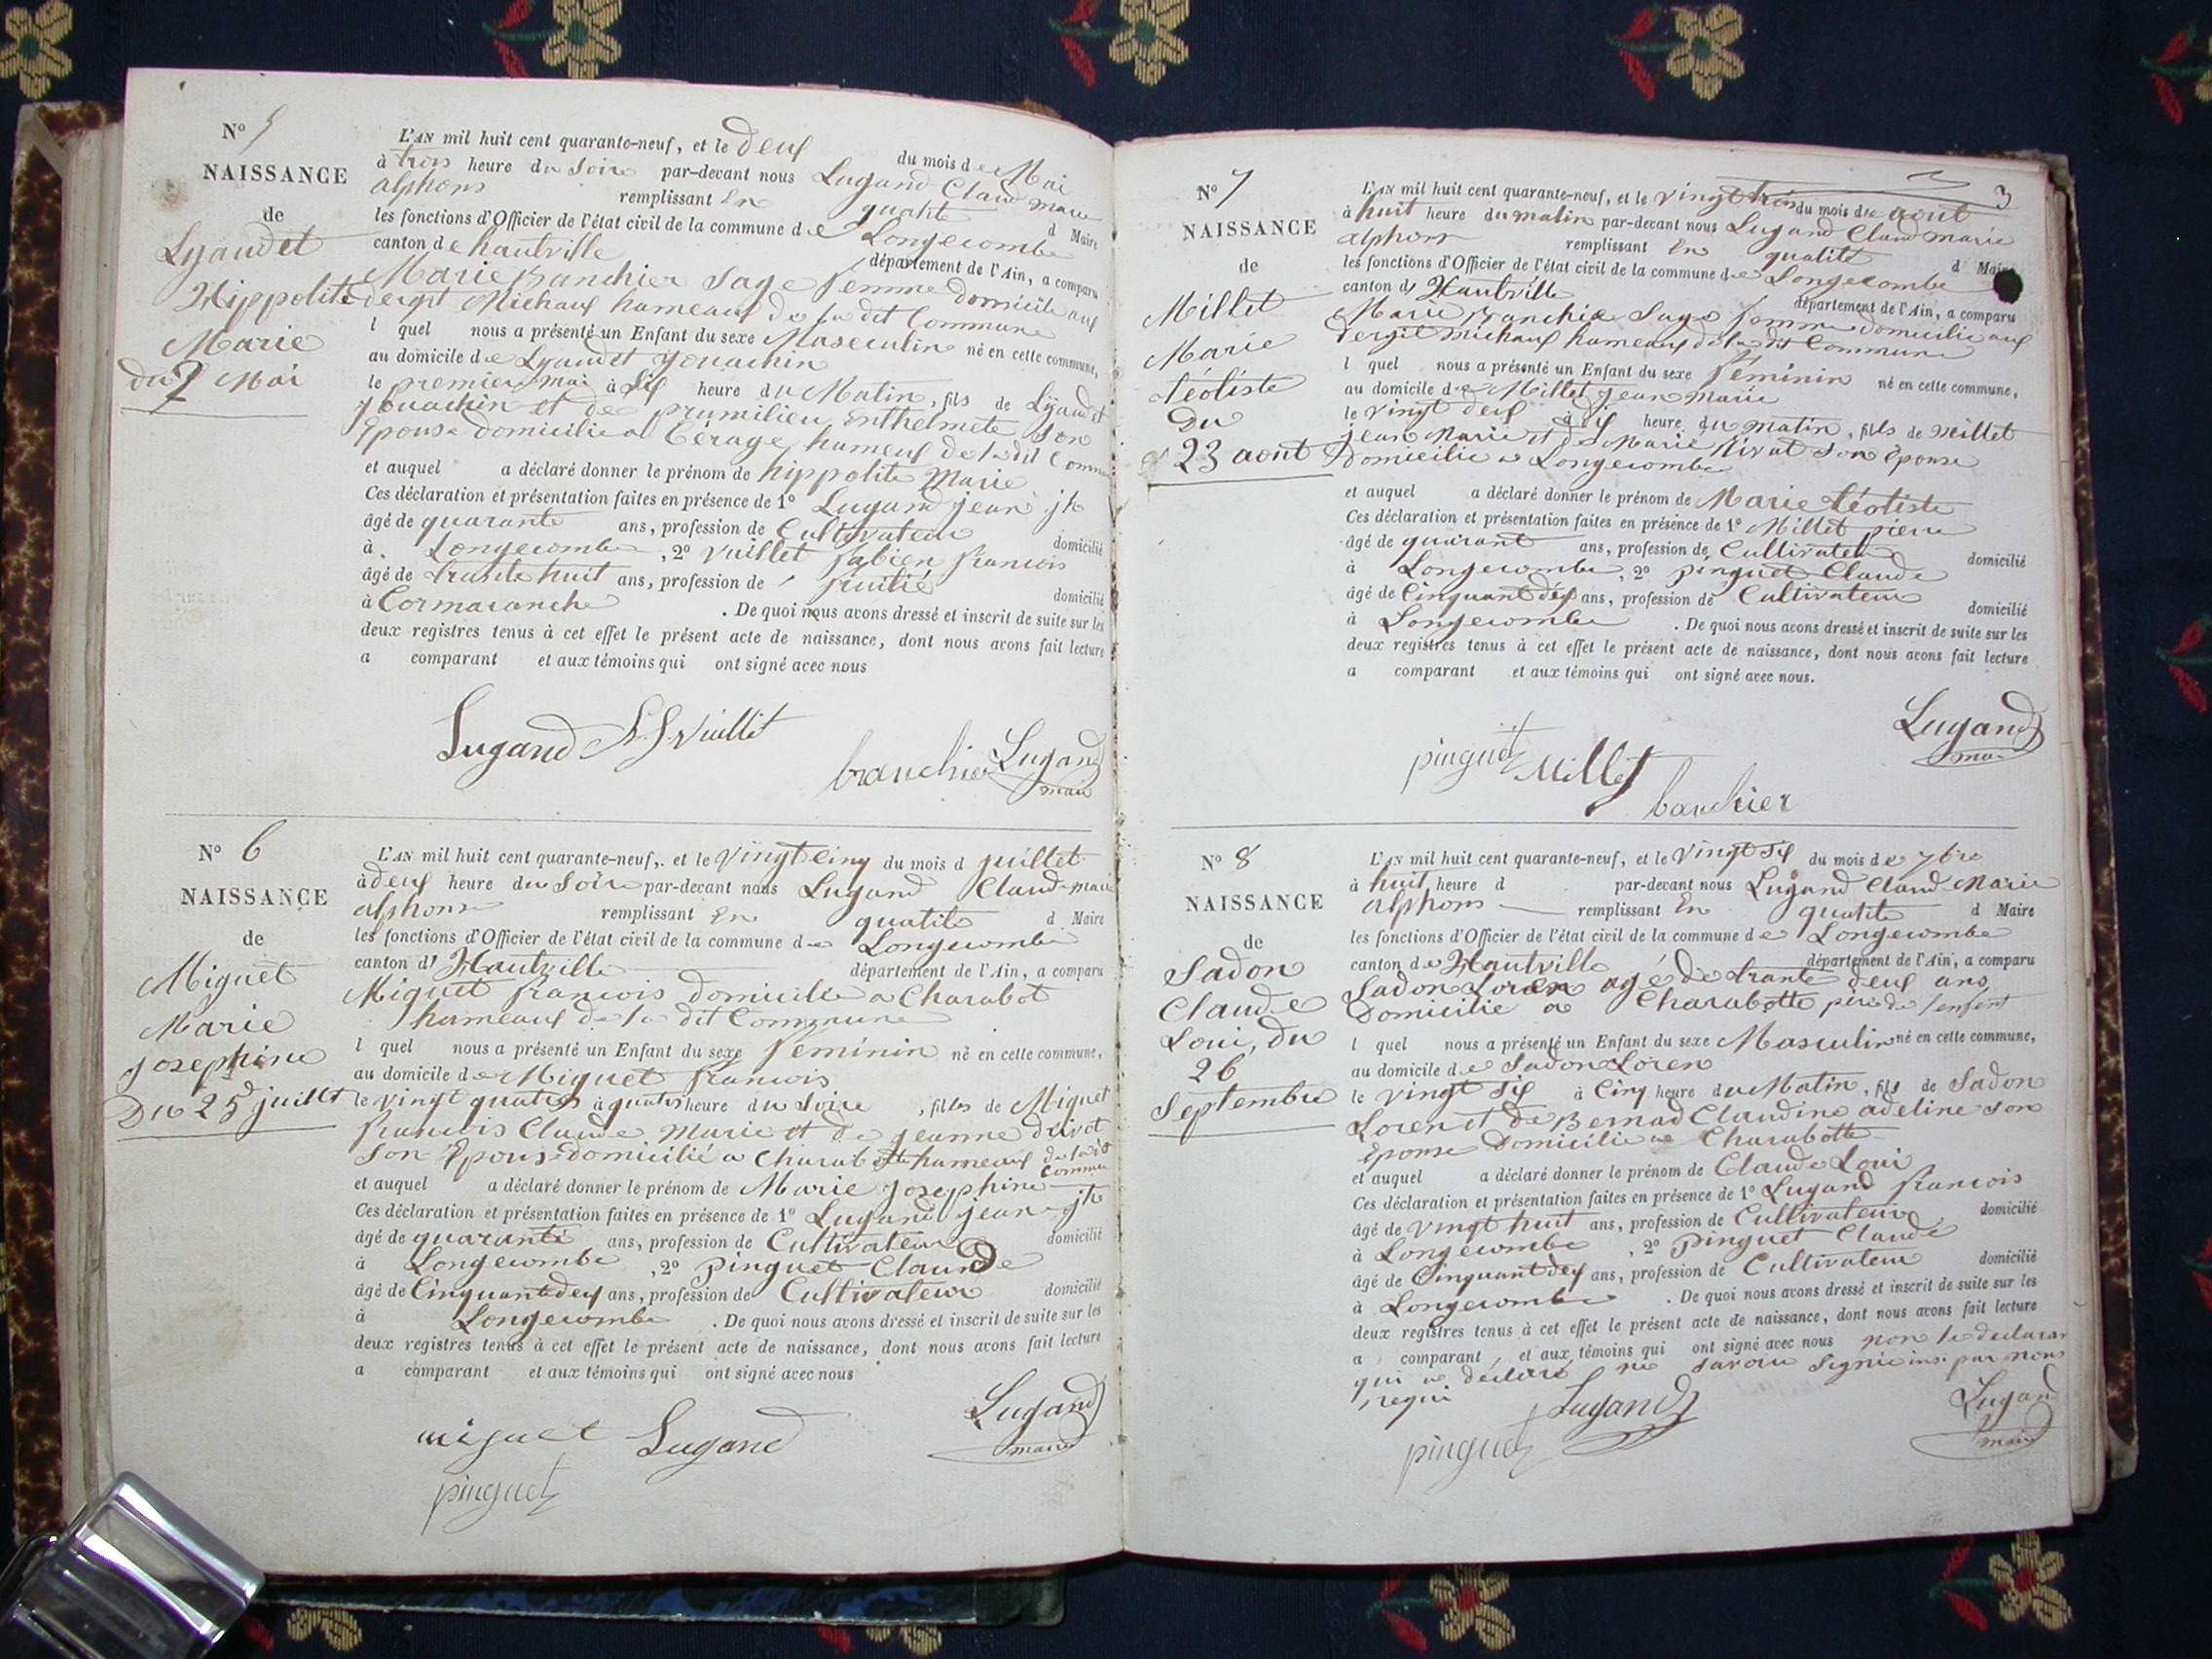 N° 5
NAISSANCE
de
Lyaudet
Hippolite
Marie
du 2 Mai
L'AN mil huit cent quarante-neuf, et le deuf du mois de Mai
à trois heure du Soire par-devant nous Lugand Claud marie
alphons remplissant En qualité d Maire
les fonctions d'Officier de l'état civil de la commune de Longecombe
canton de hautville département de l'Ain, a comparu
Marie Banchier Sage femme domicile auf
dergit Michauf hameauf de la dit Commune
l quel nous a présenté un Enfant du sexe Masculin né en cette commune,
au domicile de Lyaudet Jouachin
le premier mai à Sif heure du Matin, fils de Lyaudet
Jouachin et de prumilieu Enthelmete Son
Epouse domicilie a Cérage hameuf de la dit Comm
et auquel a déclaré donner le prénom de hippolite Marie
Ces déclaration et présentation faites en présence de 1° Lugand jean jh
âgé de quarante ans, profession de Cultivateur domicilié
à Longecombe, 2° Vuillet fabien francois
âgé de trante huit ans, profession de fruitié domicilié
à Cormaranche. De quoi nous avons dressé et inscrit de suite sur les
deux registres tenus à cet effet le présent acte de naissance, dont nous avons fait lecture
a comparant et aux témoins qui ont signé avec nous
Lugand f. f. Vuillet
banchier Lugand
mair
N° 6
NAISSANCE
de
Miguet
Marie
Josephine
Du 25 juillet
L'AN mil huit cent quarante-neuf, et le Vingt cinq du mois d juillet
à deuf heure du Soire par-devant nous Lugand Claud marie
alphons remplissant En qualité d Maire
les fonctions d'Officier de l'état civil de la commune de Longecombe
canton d Hautville département de l'Ain, a comparu
Miguet francois domicilié a Charabot
hameauf de la dit Commune
l quel nous a présenté un Enfant du sexe feminin né en cette commune,
au domicile de Miguet francois
le vingt quatre à quatre heure du Soire, filles de Miguet
francois Claude Marie et de jeanne drivet
Son Epouse domicilié a Charabotte hameauf de la dit Commune
et auquel a déclaré donner le prénom de Marie Josephine
Ces déclaration et présentation faites en présence de 1° Lugand jean jh
âgé de quarante ans, profession de Cultivateur domicilié
à Longecombe, 2° Pinguet Claude
âgé de Cinquante deuf ans, profession de Cultivateur domicilié
à Longecombe. De quoi nous avons dressé et inscrit de suite sur les
deux registres tenus à cet effet le présent acte de naissance, dont nous avons fait lecture
a comparant et aux témoins qui ont signé avec nous
miguet Lugand Lugand
maire
pinguet
3
N° 7
NAISSANCE
de
Millet
Marie
téotiste
Du
23 aout
L'AN mil huit cent quarante-neuf, et le vingt trois du mois de aout
à huit heure du matin par-devant nous Lugand Claud marie
alphons remplissant En qualité d Maire
les fonctions d'Officier de l'état civil de la commune de Longecombe
canton d Hautville département de l'Ain, a comparu
Marie Banchie Sage femme domicilie auf
dergit michauf hameauf de la dit Commune
l quel nous a présenté un Enfant du sexe feminin né en cette commune,
au domicile de Millet jean marie
le vingt deuf à sif heure du matin, fils de Millet
jean Marie et de Marie Rivat Son Epouse
Domicilie a Longecombe
et auquel a déclaré donner le prénom de Marie téotiste
Ces déclaration et présentation faites en présence de 1° Millet pierre
âgé de quarant ans, profession de Cultivateur domicilié
à Longecombe, 2° pinguet Claude
âgé de Cinquant déf ans, profession de Cultivateur domicilié
à Longecombe. De quoi nous avons dressé et inscrit de suite sur les
deux registres tenus à cet effet le présent acte de naissance, dont nous avons fait lecture
a comparant et aux témoins qui ont signé avec nous.
pinguet Millet Lugand
mair
banchier
N° 8
NAISSANCE
de
Sadon
Claude
Loui, du
26
Septembre
L'AN mil huit cent quarante-neuf, et le Vingt Sif du mois de 7bre
à huit heure d par-devant nous Lugand Claud Marie
alphons remplissant En qualité d Maire
les fonctions d'Officier de l'état civil de la commune de Longecombe
canton de Hautville département de l'Ain, a comparu
Sadon Loren agé de trante deuf ans
Domicilie a Charabotte père de l'enfent
l quel nous a présenté un Enfant du sexe Masculin né en cette commune,
au domicile de Sadon Loren
le vingt Sif à Cinq heure du Matin, fils de Sadon
Loren et de Bernad Claudine adeline son
Epouse Domicilie a Charabotte
et auquel a déclaré donner le prénom de Claude Loui
Ces déclaration et présentation faites en présence de 1° Lugand francois
âgé de vingt huit ans, profession de Cultivateur domicilié
à Longecombe, 2° Pinguet Claude
âgé de Cinquant deuf ans, profession de Cultivateur domicilié
à Longecombe. De quoi nous avons dressé et inscrit de suite sur les
deux registres tenus à cet effet le présent acte de naissance, dont nous avons fait lecture
a comparant, et aux témoins qui ont signé avec nous non le declaran
qui a declaré ne savoir Signie insi par nous
requi
Lugand Lugand
maire
pinguet